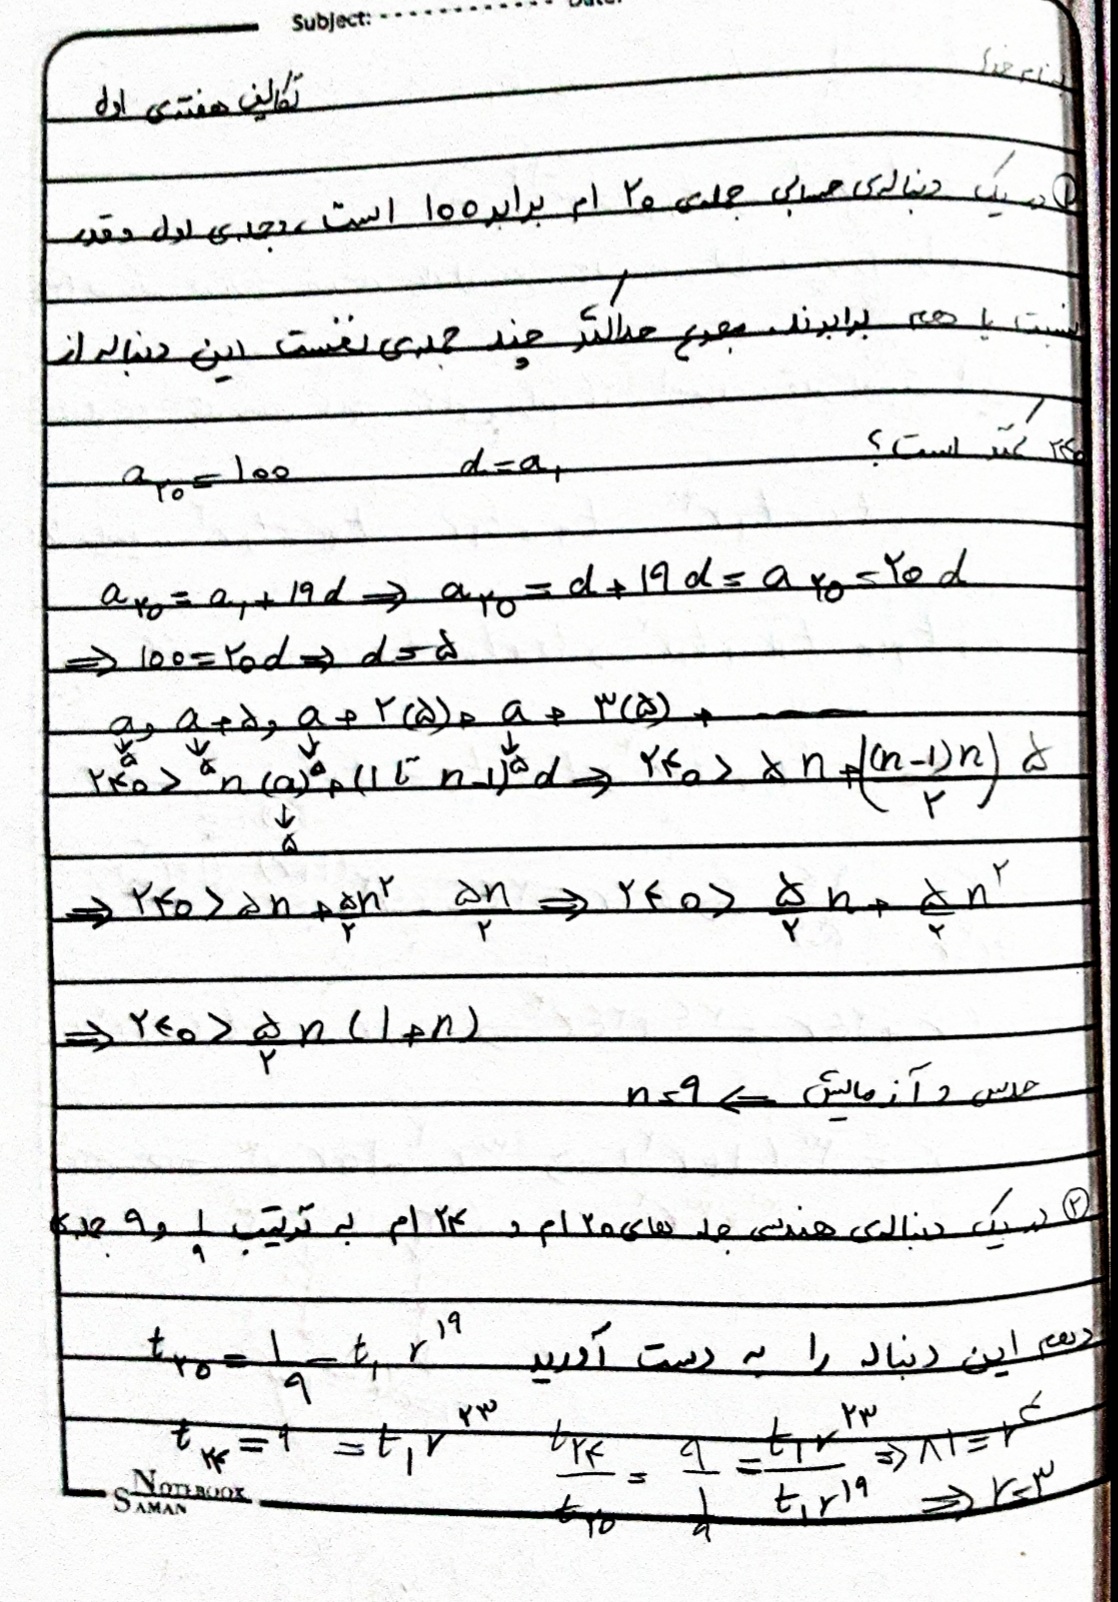 Subject: Date:
بنام خدا
تکالیف هفته‌ی اول
① در یک دنباله‌ی حسابی جمله‌ی ۲۰ ام برابر ۱۰۰ است و جمله‌ی اول و قدر
نسبت با هم برابرند. مجموع حداکثر چند جمله‌ی نخست این دنباله از
۲۴۰ کمتر است؟ d = a₁ a₂₀ = ۱۰۰
a₂₀ = a₁ + ۱۹d ⇒ a₂₀ = d + ۱۹d = a₂₀ = ۲۰d
⇒ ۱۰۰ = ۲۰d ⇒ d = ۵
a, a + ۵, a + ۲(۵) + a + ۳(۵) +
↓۵ ↓۵ ↓۵ ↓۵
۲۴۰ > n(a) + (۱ تا n-۱) d ⇒ ۲۴۰ > ۵n + ((n-۱)n / ۲) ۵
↓
۵
⇒ ۲۴۰ > ۵n + ۵n²/۲ - ۵n/۲ ⇒ ۲۴۰ > ۵/۲ n + ۵/۲ n²
⇒ ۲۴۰ > ۵/۲ n (۱ + n)
حدس و آزمایش ⇐ n = ۹
② در یک دنباله‌ی هندسی جمله های ۲۰ ام و ۲۴ ام به ترتیب ۱/۹ و ۹ جمله‌ی
دهم این دنباله را به دست آورید t₂₀ = ۱/۹ = t₁ r¹⁹
t₂₄ = ۹ = t₁ r²³ t₂₄/t₂₀ = ۹/(۱/۹) = t₁ r²³/t₁ r¹⁹ ⇒ ۸۱ = r⁴
⇒ r = ۳
SAMAN NOTEBOOK